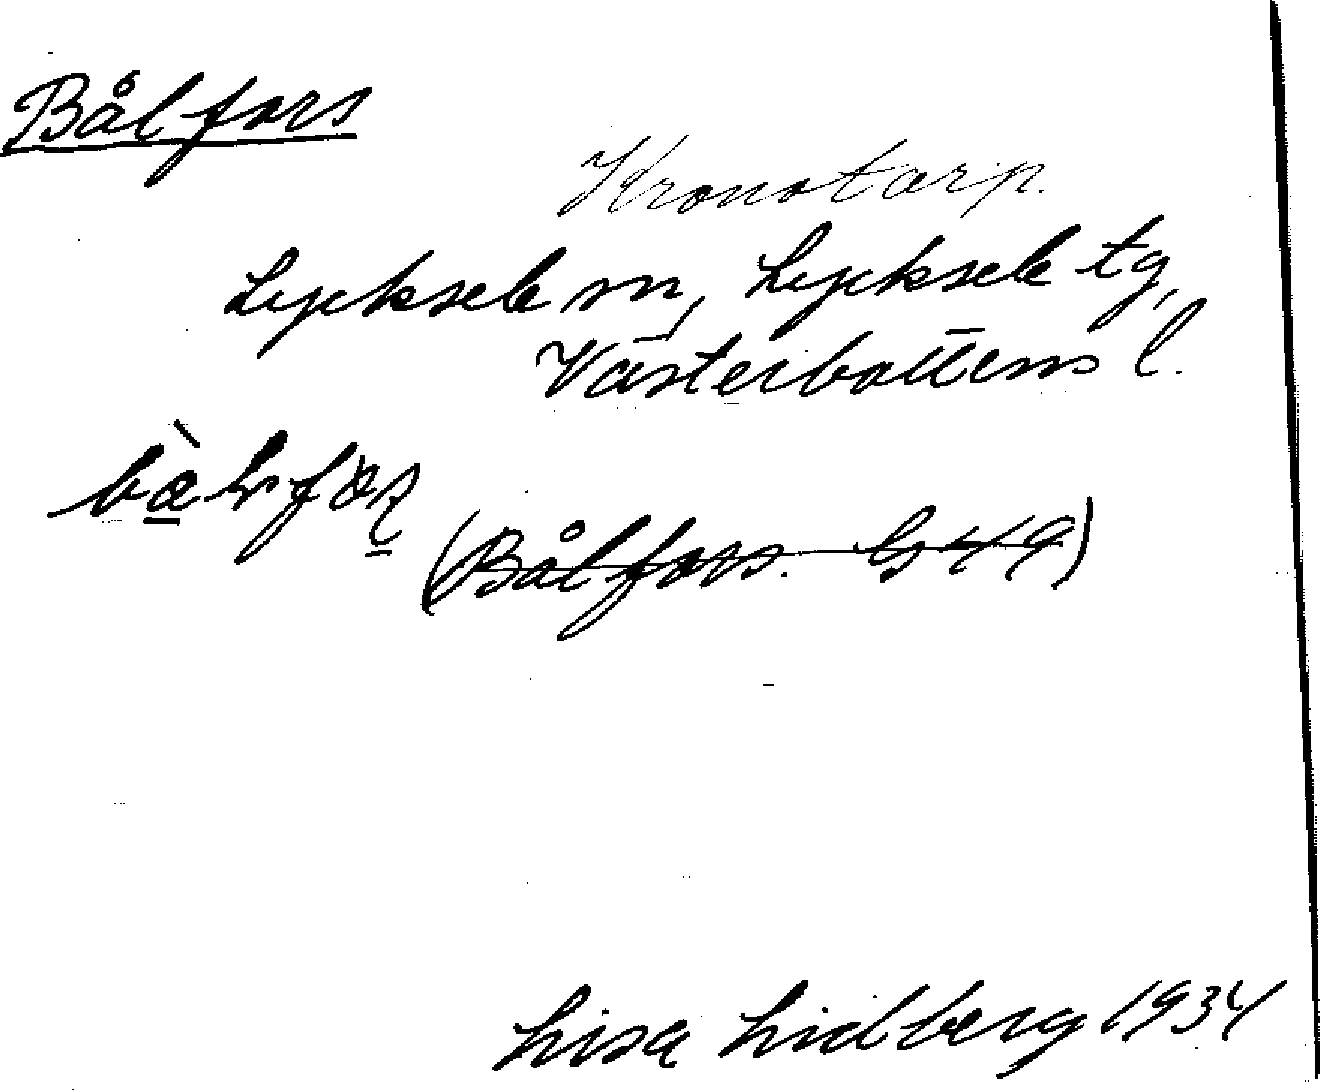 Bålfors
Kronotorp.
Lycksele sn, Lycksele tg,
Västerbottens l.
(Bålfors. G 49)
Lisa Lidberg 1934